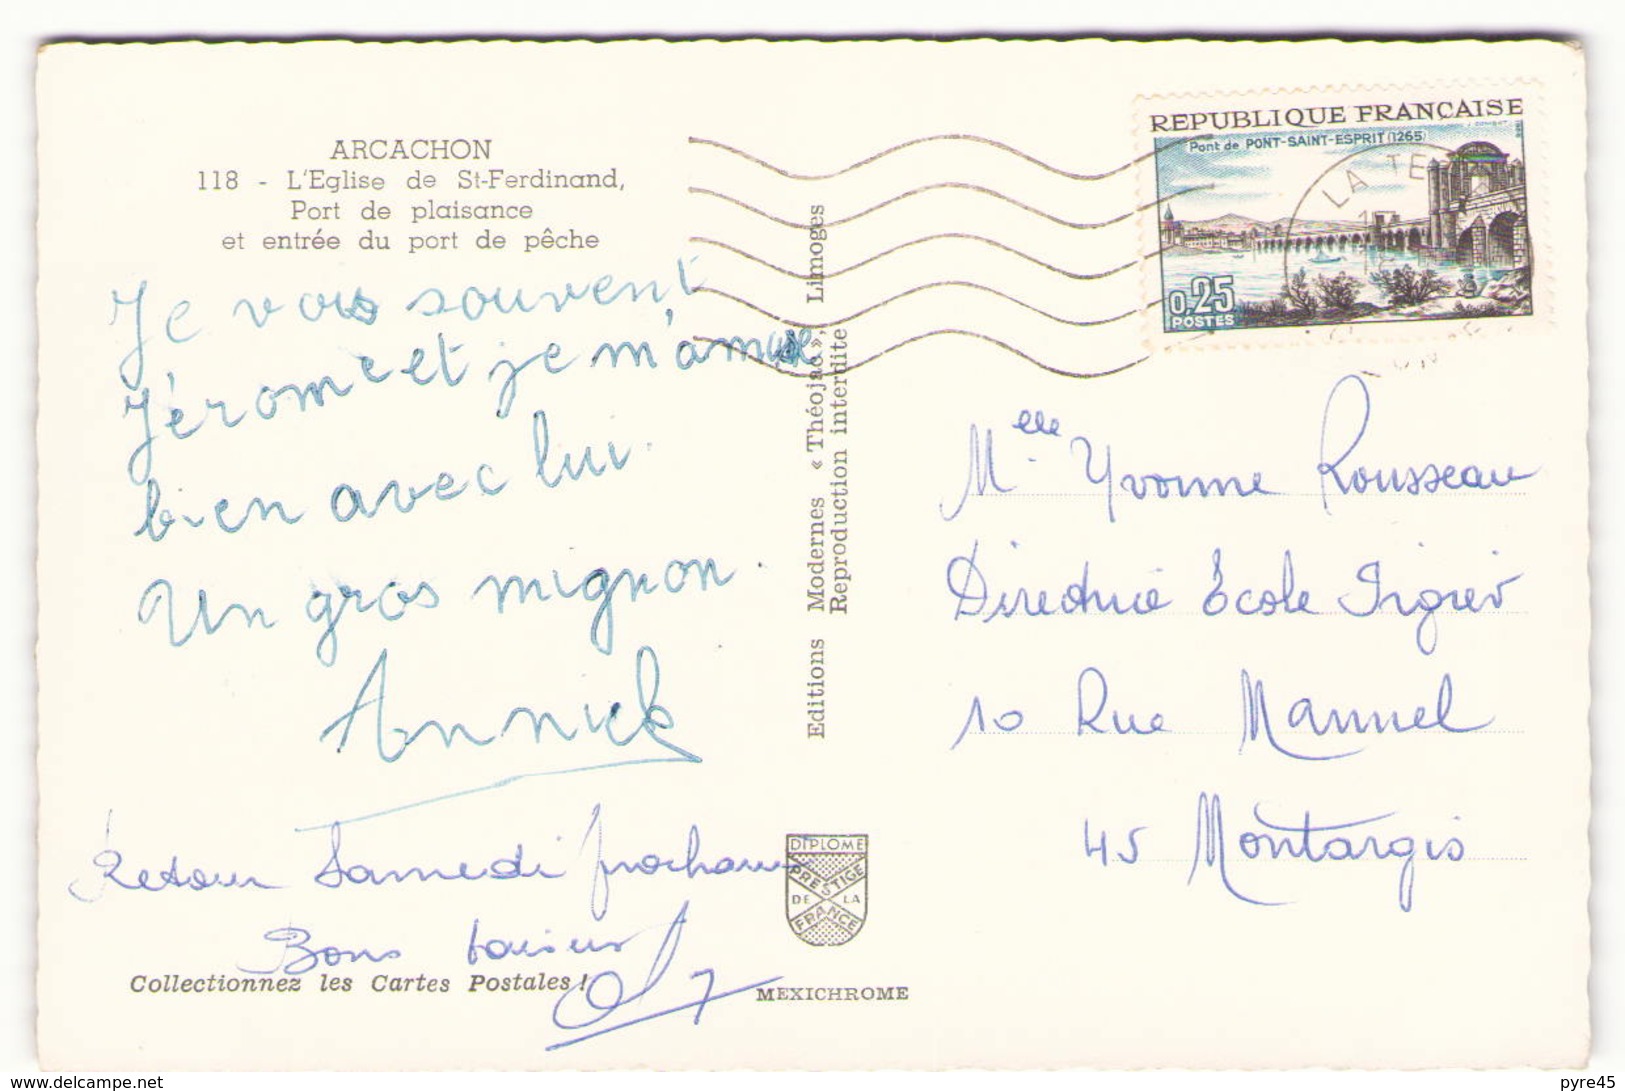 ARCACHON
118 - L'Eglise de St-Ferdinand,
Port de plaisance
et entrée du port de pêche
Je vois souvent
Jérome et je m'amuse
bien avec lui.
Un gros mignon.
Annick
Retour Samedi prochain
Bons baisers
Collectionnez les Cartes Postales !
Editions Modernes « Théojac », Limoges
Reproduction interdite
DIPLOME
PRESTIGE
DE LA
FRANCE
MEXICHROME
REPUBLIQUE FRANÇAISE
Pont de PONT-SAINT-ESPRIT (1265)
0,25
POSTES
LA TE
Melle Yvonne Rousseau
Directrice Ecole Pigier
10 Rue Mannel
45 Montargis
www.delcampe.net
pyre45